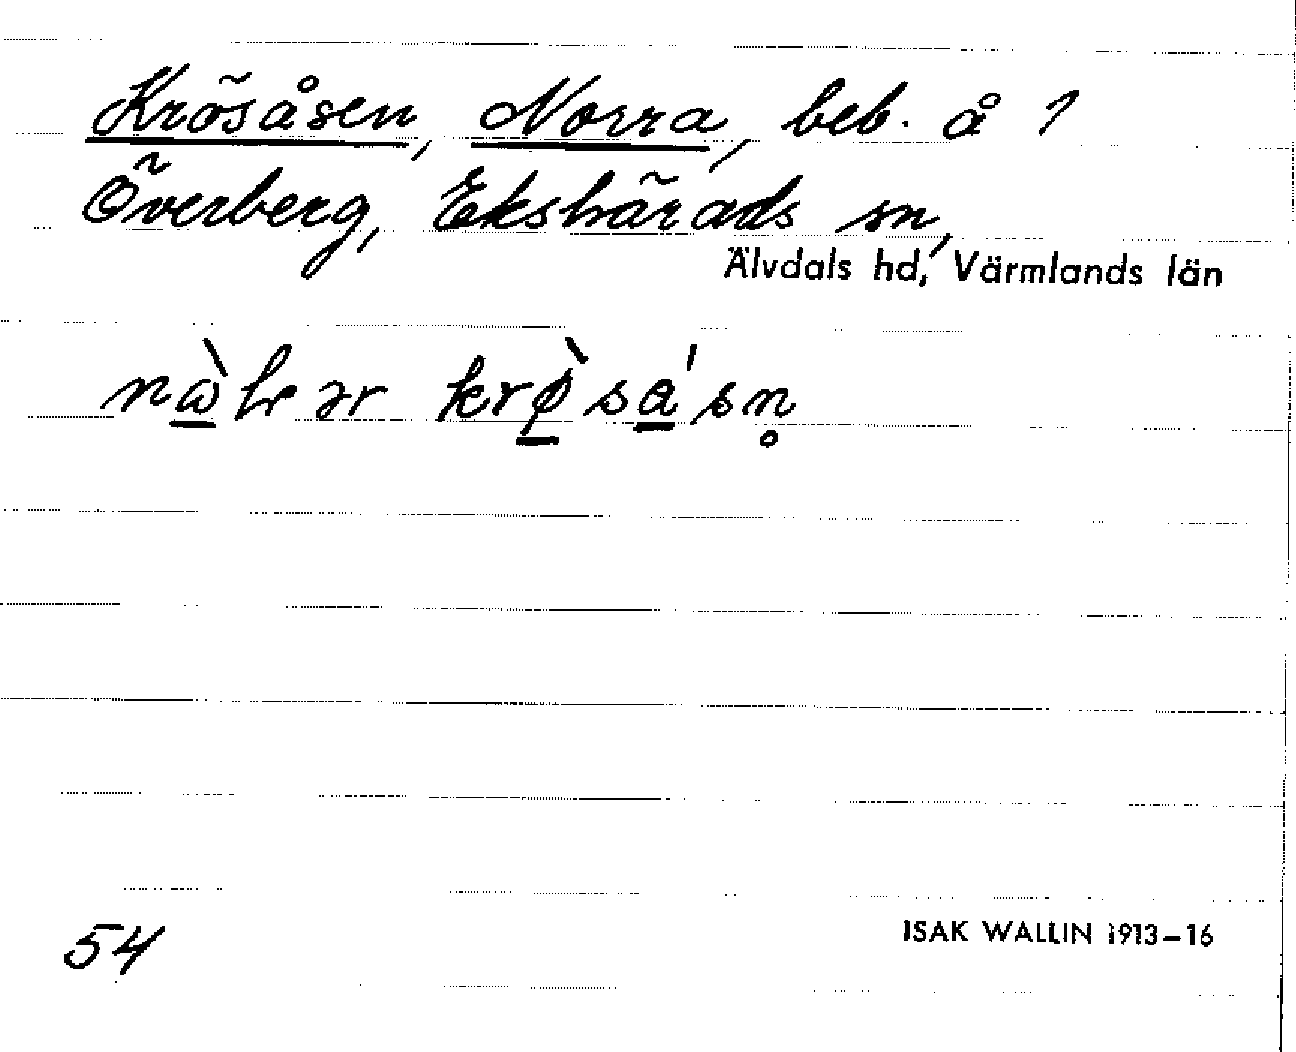 Krösåsen, Norra, beb. å 1
Överberg, Ekshärads sn,
Älvdals hd, Värmlands län
54
ISAK WALLIN 1913–16